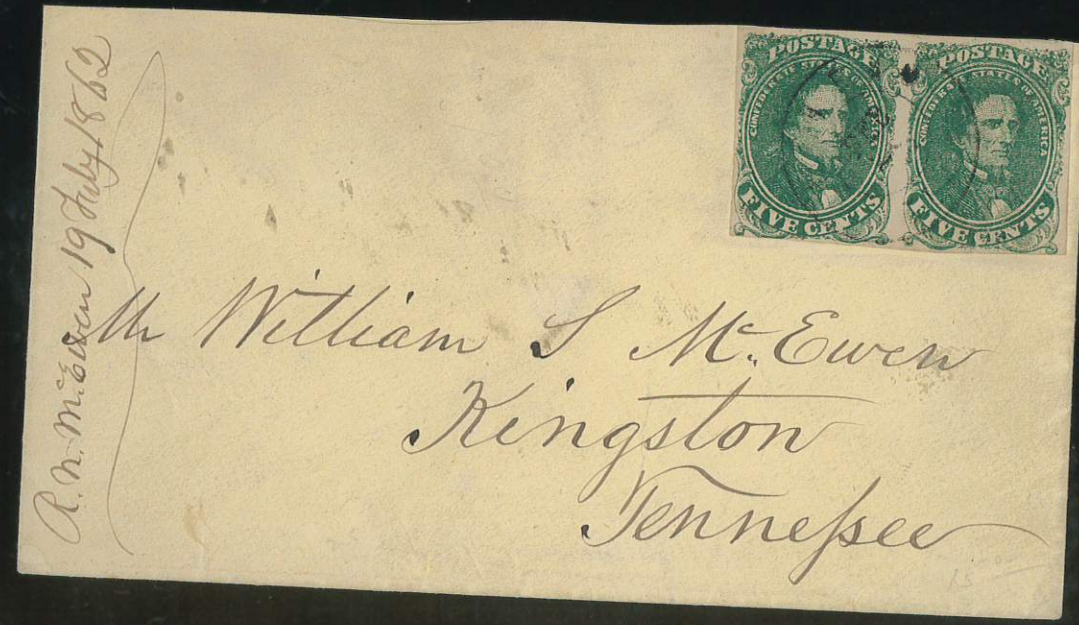 R. N. McEwen 19 July 1862
POSTAGE
CONFEDERATE STATES OF AMERICA
FIVE CENTS
POSTAGE
CONFEDERATE STATES OF AMERICA
FIVE CENTS
Mr William S McEwen
Kingston
Tenneſsee
15